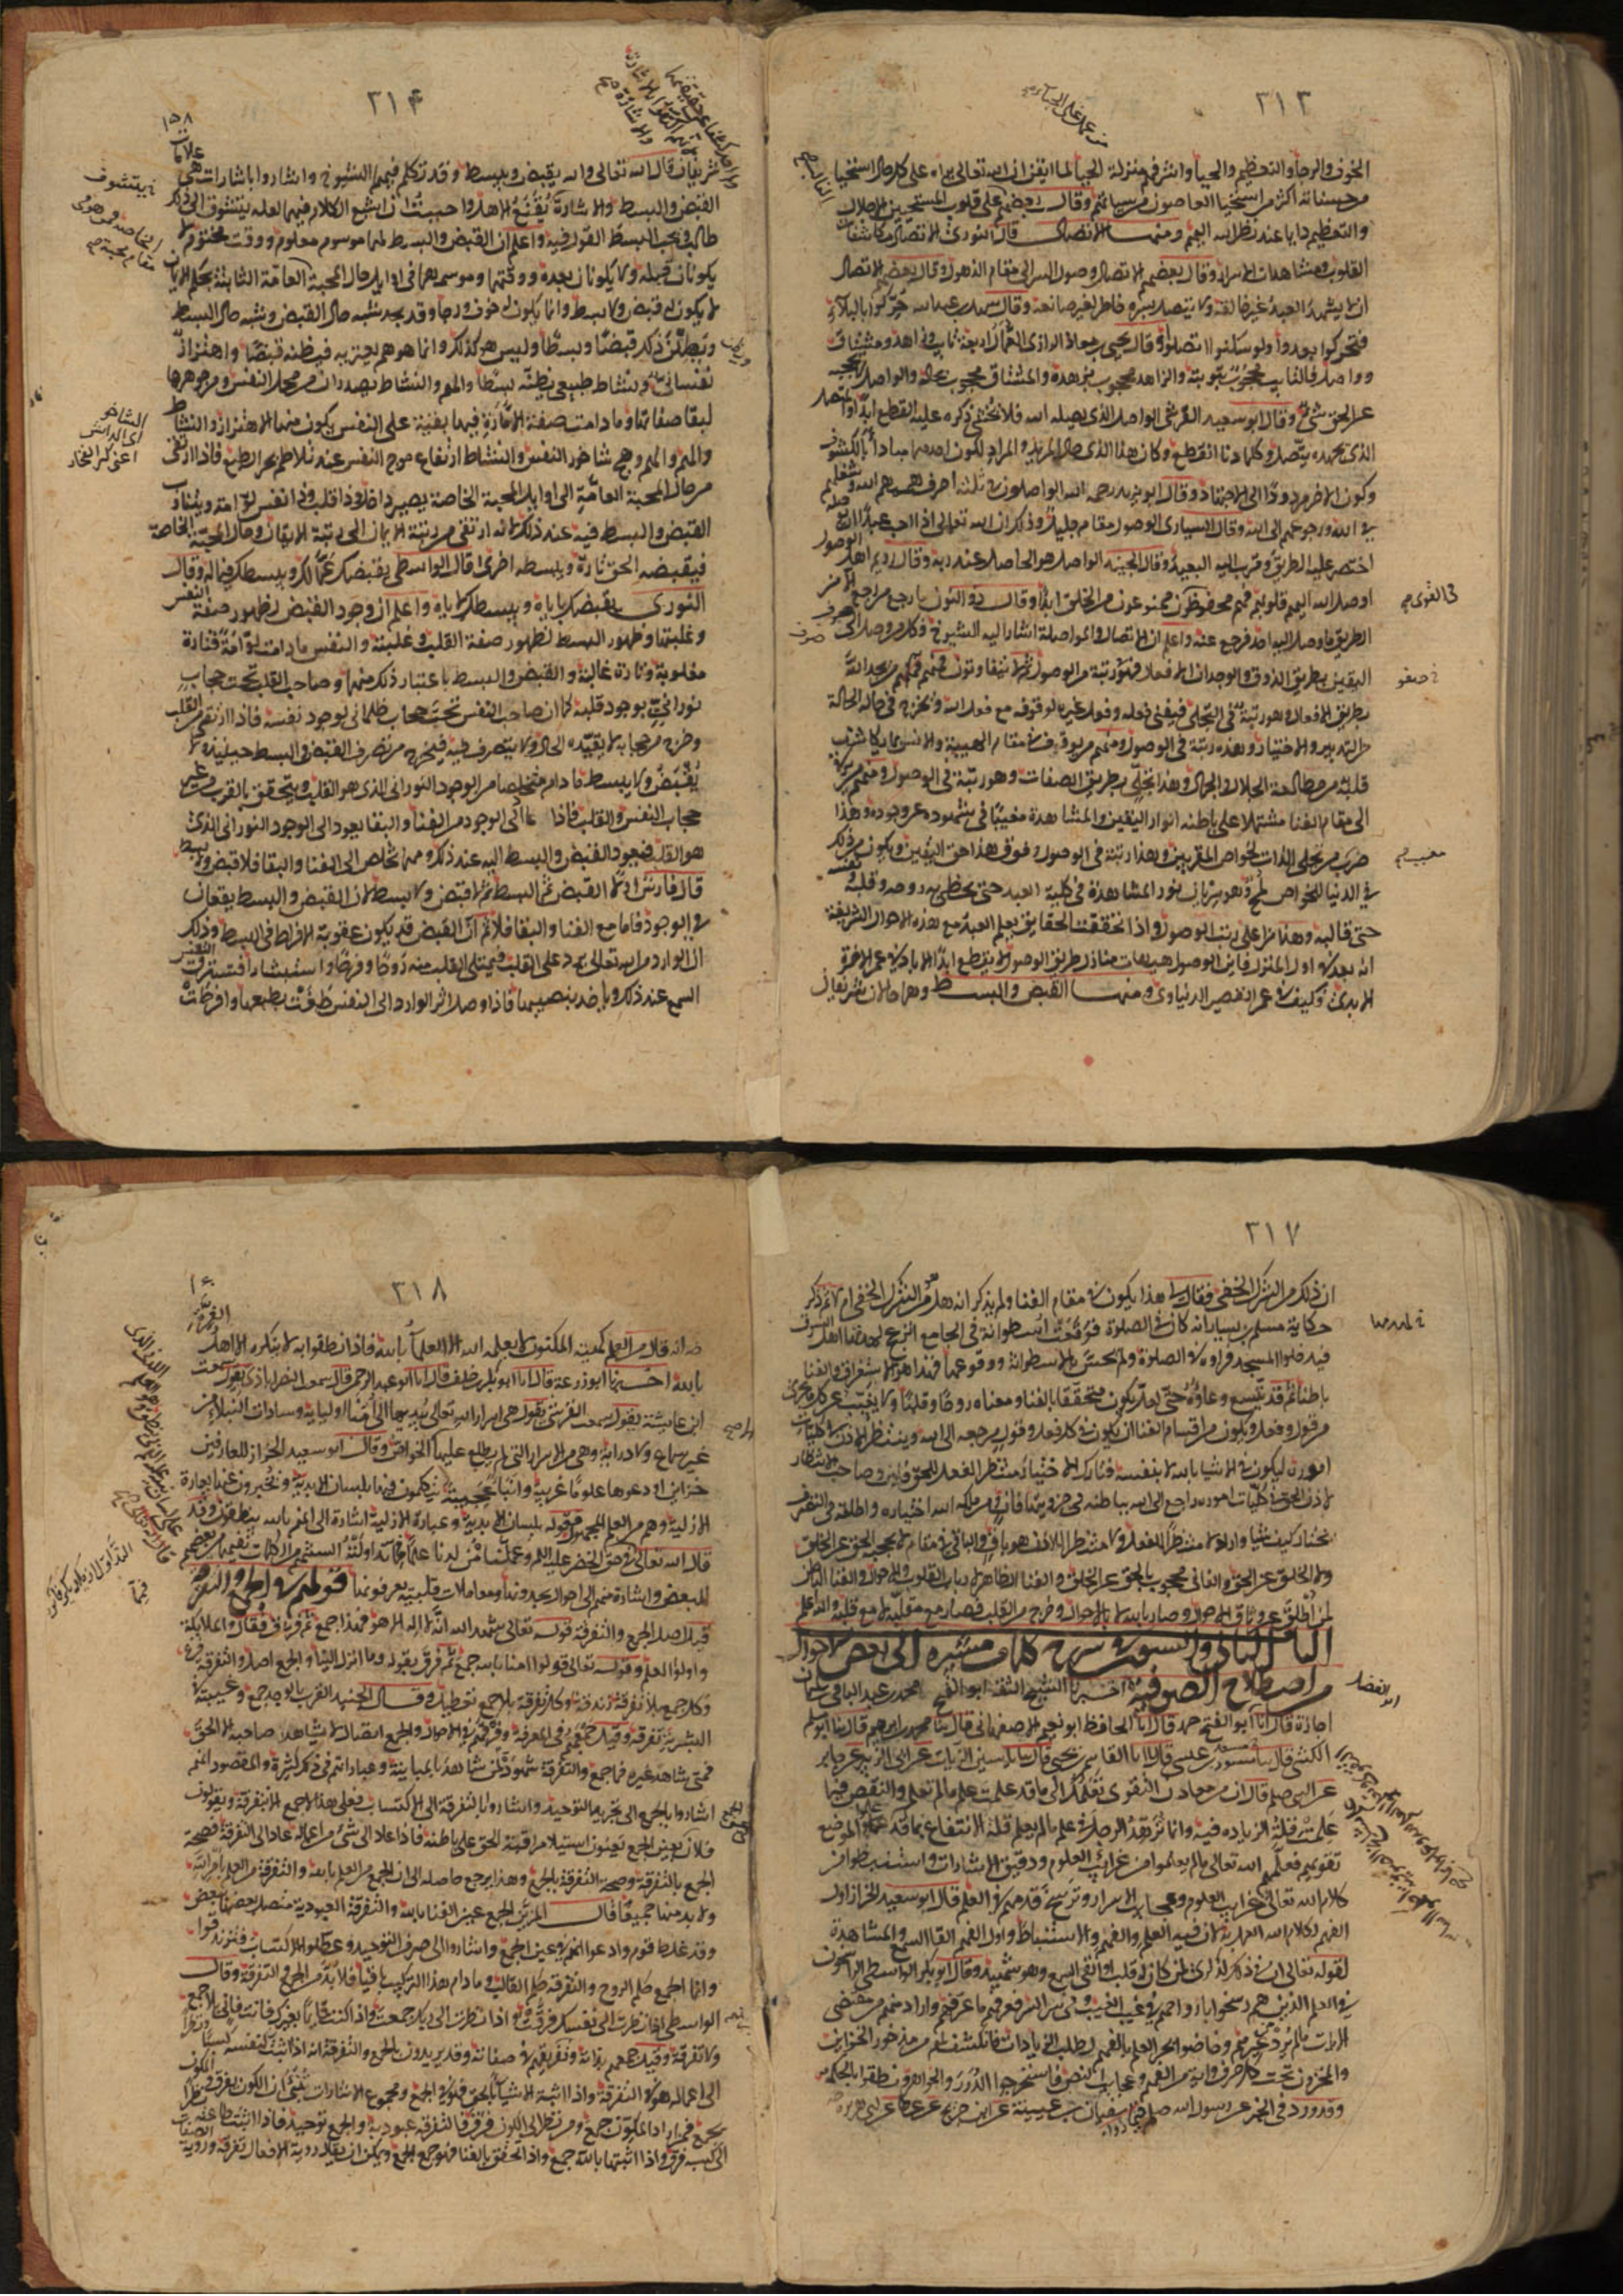 ٣١٣
الخوف والرجا والتعظيم والحيا واشرفهم منزلة الحيا لما ايقن ان الله تعالى يراه على كل حال استحيا
من حسناته اكثر من استحيا العاصون من سيآتهم وقال بعضهم على قلوب المستحيين الاجلال
والتعظيم دايما عند نظر الله اليهم ومنها الاتصال قال النورى الاتصال مكاشفات
القلوب ومشاهدات الاسرار وقال بعضهم الاتصال وصول السر الى مقام الذهول وقال بعضهم الاتصال
ان لا يشهد العبد غير خالقه ولا يتصل بسره خاطر لغير صانعه وقال سهل بن عبد الله حركوا بالبلاء
فتحركوا ولو سكنوا اتصلوا وقال يحيى بن معاذ الرازى العمال اربعة تايب وزاهد ومشتاق
وواصل فالتايب محجوب بتوبته والزاهد محجوب بزهده والمشتاق محجوب بحاله والواصل لا يحجبه
عن الحق شئ وقال ابو سعيد القرشى الواصل الذى يصله الله فلا يخشى عليه القطع ابدا والمتصل
الذى بجهده يتصل وكلما دنا انقطع وكان هذا الذى حال المريد والمراد لكون احدهما مبادا بالكشوف
وكون الاخر مردودا الى الاجتهاد وقال ابو يزيد رحمه الله الواصلون فى ثلثة احرف همهم الله وشغلهم
فى الله ورجوعهم الى الله وقال السيارى الوصول مقام جليل وذكر ان الله تعالى اذا احب عبدا ان
اختصر عليه الطريق وقرب اليه البعيد وقال الجنيد الواصل هو الحاصل عند ربه وقال رويم اهل
اوصل الله اليهم قلوبهم فهم محفوظون ممنوعون من الخلق ابدا وقال ذو النون ما رجع من رجع الا من
الطريق وما وصل اليه احد فرجع عنه واعلم ان الاتصال والمواصلة اشار اليه الشيوخ وكل من وصل الى
اليقين بطريق الذوق والوجدان فهو رتبة من الوصول ثم يتفاوتون فمنهم من يجد الله
بطريق الافعال وهو رتبة فى التجلى فيفنى فعله وفعل غيره لوقوفه مع فعل الله ويخرج فى هذه الحالة
من التدبير والاختيار وهذه رتبة فى الوصول ومنهم من يوقف فى مقام الهيبة والانس بما يكاشف
قلبه من مطالعة الجلال والجمال وهذا تجلى بطريق الصفات وهو رتبة فى الوصول ومنهم من ترقى
الى مقام الفنا مشتملا على باطنه انوار اليقين والمشاهدة مغيبا فى شهوده عن وجوده وهذا
ضرب من تجلى الذات لخواص المقربين وهذا رتبة فى الوصول وفوق هذا حق اليقين ويكون من ذلك
فى الدنيا للخواص لمح وهو سريان نور المشاهدة فى كلية العبد حتى يحظى به روحه وقلبه
حتى قالبه وهذا من اعلى رتب الوصول واذا تحققت الحقايق يعلم العبد مع هذه الاحوال الشريفة
انه بعد فى اول المنزل فاين الوصول هيهات منازل طريق الوصول لا ينقطع ابد الاباد فى عمر الاخرة
الابدى فكيف فى عمر القصير الدنياوى ومنها القبض والبسط وهما حالان شريفان
فى القوى
صرف
صفو
مغيب
٣١٤
١٥٨
شريفان قال الله تعالى والله يقبض ويبسط وقد تكلم فيهما الشيوخ واشاروا باشارات هى علامات
القبض والبسط والاشارة تقنع الاهل واحببت ان اشبع الكلام فيهما لعله يتشوق الى ذلك
طالب ويحب بسط القول فيه واعلم ان القبض والبسط لهما موسم معلوم ووقت محتوم لا
يكونان قبله ولا يكونان بعده ووقتهما وموسمهما فى اوايل حال المحبة العامة الثابتة بحكم الايمان
لا يكون له قبض ولا بسط وانما يكون له خوف ورجا وقد يجد شبه حال القبض وشبه حال البسط
ويظن ذلك قبضا وبسطا وليس هو كذلك وانما هو هم يعتريه فيظنه قبضا واهتزاز
نفسانى ونشاط طبيعى يظنه بسطا والهم والنشاط يصدران من محل النفس ومن جوهرها
لبقا صفاتها وما دامت صفة الامارة فيها بقية على النفس يكون منها الاهتزاز والنشاط
والهم وهج ساجور النفس والنشاط ارتفاع موج النفس عند تلاطم بحر الطبع فاذا ارتقى
من حال المحبة العامة الى اوايل المحبة الخاصة يصير ذا حال وذا قلب وذا نفس لوامة ويتناوب
القبض والبسط فيه عند ذلك لانه ارتقى من رتبة الايمان الى رتبة الايقان وحال المحبة الخاصة
فيقبضه الحق تارة ويبسطه اخرى قال الواسطى يقبضك عما لك ويبسطك فيما له وقال
النورى يقبضك باياك ويبسطك لاياه واعلم ان وجود القبض لظهور صفة النفس
وغلبتها وظهور البسط لظهور صفة القلب وغلبته والنفس ما دامت لوامة فتارة
مغلوبة وتارة غالبة والقبض والبسط باعتبار ذلك منها وصاحب القلب تحت حجاب
نورانى بوجود قلبه كما ان صاحب النفس تحت حجاب ظلمانى لوجود نفسه فاذا ارتقى من القلب
وخرج من حجابه لا يقيده الحال ولا يتصرف فيه فيخرج من تصرف القبض والبسط حينئذ فلا
يقبض ولا يبسط ما دام متخلصا من الوجود النورانى الذى هو القلب ويتحقق بالقرب من غير
حجاب النفس والقلب فاذا عاد الى الوجود من الفنا والبقا يعود الى الوجود النورانى الذى
هو القلب فيعود القبض والبسط اليه عند ذلك ومهما تخلص الى الفنا والبقا فلا قبض ولا بسط
قال فارس اولا القبض ثم البسط ثم لا قبض ولا بسط لان القبض والبسط يقعان
فى الوجود فاما مع الفنا والبقا فلا ثم ان القبض قد يكون عقوبة الافراط فى البسط وذلك
ان الوارد من الله تعالى يرد على القلب فيمتلى القلب منه روحا وفرحا واستبشارا فتسترق النفس
السمع عند ذلك وتاخذ نصيبها فاذا وصل اثر الوارد الى النفس طغت بطبعها وافرطت
يتشوف
٣١٧
ان ذلك من الشرك الخفى فقال لى هذا يكون فى مقام الفنا ولم يذكر انه هل هو من الشرك الخفى ام لا ثم ذكر
حكاية مسلم بن يسار انه كان فى الصلوة فوقعت اسطوانة فى الجامع انزعج لهدتها اهل السوق
فدخلوا المسجد فراوه فى الصلوة ولم يحس بالاسطوانة ووقوعها فهذا هو الاستغراق والفنا
باطنا ثم قد يتسع وعاؤه حتى لعله يكون متحققا بالفنا ومعناه روحا وقلبا ولا يغيب عن كل ما يجرى
من قول وفعل ويكون من اقسام الفنا ان يكون فى كل فعل وقول مرجعه الى الله وينتظر الاذن فى كليات
اموره ليكون فى الاشيا بالله لا بنفسه فتارك الاختيار منتظر لفعل الحق فان وصاحب الانتظار
لاذن الحق فى كليات اموره راجع الى الله بباطنه فى جزوياتها فان ومن ملكه الله اختياره واطلقه فى التصرف
يختار كيف شا واراد لا منتظرا للفعل ولا منتظرا للاذن هو باق والباقى فى مقام لا يحجبه الحق عن الخلق
ولا الخلق عن الحق والفانى محجوب بالحق عن الخلق والفنا الظاهر لارباب القلوب والاحوال والفنا الباطن
لمن اطلق عن وثاق الاحوال وصار بالله لا بالاحوال وخرج من القلب فصار مع مقلبه لا مع قلبه والله اعلم
الباب الثانى والستون فى شرح كلمات مشيرة الى بعض الاحوال
من اصطلاح الصوفية اخبرنا الشيخ الثقة ابو الفتح محمد بن عبد الباقى بن سلمان
اجازة قال انا ابو الفضل حمد قال انا الحافظ ابو نعيم الاصفهانى قال ثنا محمد بن ابراهيم قال ثنا ابو مسلم
الكشى قال ثنا مسور بن عيسى قال ثنا القاسم بن يحيى قال ثنا ياسين الزيات عن ابى الزبير عن جابر
عن النبى صلعم قال ان من معادن التقوى تعلمك الى ما قد علمت علم ما لم تعلم والنقص فيما
علمت قلة الزياده فيه وانما يزهد الرجل فى علم ما لم يعلم قلة الانتفاع بما قد علم
تقويهم فعلمهم الله تعالى ما لم يعلموا من غرائب العلوم ودقيق الاشارات واستنبطوا من
كلام الله تعالى غرايب العلوم وعجايب الاسرار وترسخ قدمهم فى العلم قال ابو سعيد الخراز اول
الفهم لكلام الله العمل به لان فيه العلم والفهم والاستنباط واول الفهم القا السمع والمشاهدة
لقوله تعالى ان فى ذلك لذكرى لمن كان له قلب او القى السمع وهو شهيد وقال ابو بكر الواسطى الراسخون
فى العلم الذين هم رسخوا بارواحهم فى غيب الغيب وفى سر السر فعرفهم ما عرفهم واراد منهم من مقتضى
الايات ما لم يرد من غيرهم وخاضوا بحر العلم بالفهم لطلب الزيادات فانكشف لهم من مذخور الخزاين
والمخزون تحت كل حرف واية من الفهم وعجايب النص فاستخرجوا الدرر والجواهر ونطقوا بالحكمة
وقد ورد فى الخبر عن رسول الله صلعم فيما رواه سفيان بن عيينة عن ابن جريج عن عطا عن ابى هريرة
ابو الفضل
٣١٨
١٦٠
انه قال من العلم كهيئة المكنون لا يعلمه الا العلمآ بالله فاذا نطقوا به لا ينكره الا اهل الغرة
بالله اخبرنا ابو زرعة قال انا ابو بكر بن خلف قال انا ابو عبد الرحمن قال سمعت النصراباذى يقول سمعت
ابن عايشة يقول سمعت القرشى يقول هى اسرار الله تعالى يبديها الى امنا اوليايه وسادات النبلا من
غير سماع ولا دراية وهى من الاسرار التى لم يطلع عليها الا الخواص وقال ابو سعيد الخراز للعارفين
خزاين اودعوها علوما غريبة وانباء عجيبة يتكلمون فيها بلسان الابدية ويخبرون عنها بعبارة
الازلية وهى من العلم المجهول فقوله بلسان الابدية وعبارة الازلية اشارة الى انهم بالله ينطقون وقد
قال الله تعالى فى حق الخضر عليه السلم وعلمناه من لدنا علما فما تداولته السنتهم من الكلمات تفهيما من بعضهم
للبعض واشارة منهم الى احوال يجدونها ومعاملات قلبية يعرفونها قولهم فى الجمع والتفرقة
قيل اصل الجمع والتفرقة قوله تعالى شهد الله انه لا اله الا هو فهذا جمع ثم فرق فقال والملايكة
واولوا العلم وقوله تعالى قولوا امنا بالله جمع ثم فرق بقوله وما انزل الينا والجمع اصل والتفرقة فرع
وكل جمع بلا تفرقة زندقة وكل تفرقة بلا جمع تعطيل وقال الجنيد القرب بالوجد جمع وغيبته فى
البشرية تفرقة وقيل جمعهم فى المعرفة وفرقهم فى الاحوال والجمع اتصال لا يشاهد صاحبه الا الحق
فمتى شاهد غيره فما جمع والتفرقة شهود لمن شاهد بالمباينة وعباراتهم فى ذلك كثيرة والمقصود انهم
اشاروا بالجمع الى تجريد التوحيد واشاروا بالتفرقة الى الاكتساب فعلى هذا لا جمع الا بتفرقة ويقولون
فلان فى عين الجمع يعنون استيلا مراقبة الحق على باطنه فاذا عاد الى شئ من اعماله عاد الى التفرقة فصحة
الجمع بالتفرقة وصحة التفرقة بالجمع وهذا يرجع حاصله الى ان الجمع من العلم بالله والتفرقة من العلم بامر الله
ولا بد منهما جميعا قال المزين الجمع عين الفنا بالله والتفرقة العبودية متصل بعضها ببعض
وقد غلط قوم وادعوا انهم فى عين الجمع واشاروا الى صرف التوحيد وعطلوا الاكتساب فتزندقوا
وانما الجمع حكم الروح والتفرقة حكم القالب وما دام هذا التركيب باقيا فلا بد من الجمع والتفرقة وقال
الواسطى اذا نظرت الى نفسك فرقت واذا نظرت الى ربك جمعت واذا كنت قايما بغيرك فانت فان بلا جمع
ولا تفرقة وقيل جمعهم بذاته وفرقهم فى صفاته وقد يريدون بالجمع والتفرقة انه اذا اثبت لنفسه كسبا ونظرا
الى اعماله فهو فى التفرقة واذا اثبت الاشيا بالحق فهو فى الجمع ومجموع الاشارات ينبئ ان الكون يفرق والمكون
يجمع فمن افرد المكون جمع ومن نظر الى الكون فرق فالتفرقة عبودية والجمع توحيد فاذا اثبت طاعته نظرا
الى كسبه فرق واذا اثبتها بالله جمع واذا تحقق بالفنا فهو جمع الجمع ويمكن ان يقال روية الافعال تفرقة وروية الصفات